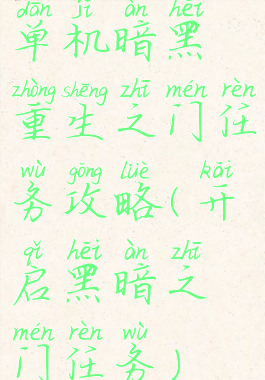 dān jī àn hēi
单机暗黑
zhòng shēng zhī mén rèn
重生之门任
wù gōng lüè kāi
务攻略(开
qǐ hēi àn zhī
启黑暗之
mén rèn wù
门任务)